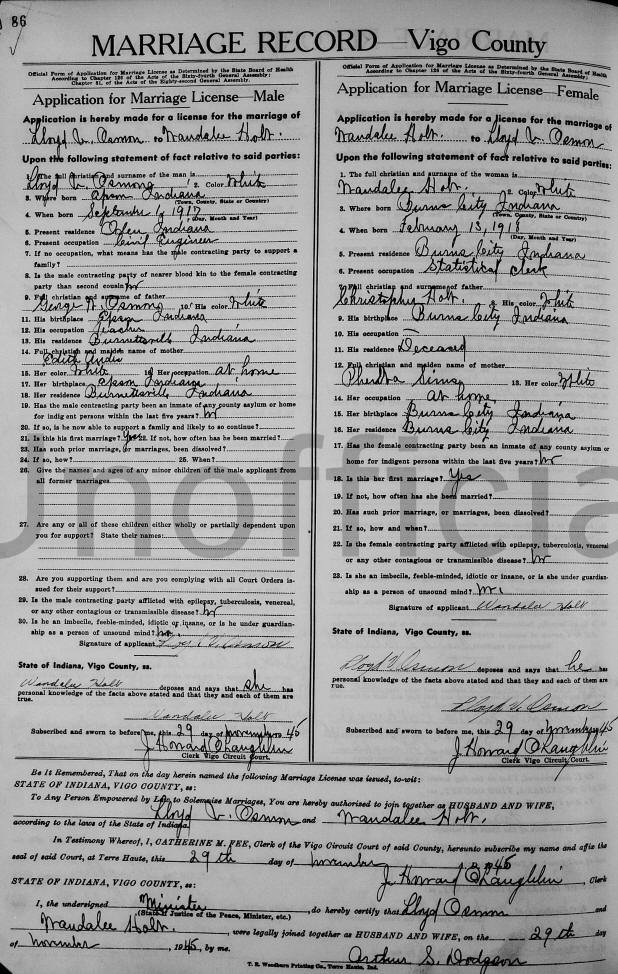 86
MARRIAGE RECORD—Vigo County
Official Form of Application for Marriage License as Determined by the State Board of Health
According to Chapter 126 of the Acts of the Sixty-fourth General Assembly:
Chapter 81, of the Acts of the Eighty-second General Assembly.
Application for Marriage License—Male
Application is hereby made for a license for the marriage of
Lloyd V. Osmon to Wandalee Holt.
Upon the following statement of fact relative to said parties:
1. The full christian and surname of the man is
Lloyd V. Osmon 2. Color White
3. Where born Epsom Indiana
(Town, County, State or Country)
4. When born September 1, 1917
(Day, Month and Year)
5. Present residence Odon Indiana
6. Present occupation Civil Engineer
7. If no occupation, what means has the male contracting party to support a
family?
8. Is the male contracting party of nearer blood kin to the female contracting
party than second cousin? No
9. Full christian and surname of father
George W. Osmon 10. His color White
11. His birthplace Epsom Indiana
12. His occupation Teacher
13. His residence Burnettsville Indiana
14. Full christian and maiden name of mother
Edith
15. Her color White 16. Her occupation at home
17. Her birthplace Epsom Indiana
18. Her residence Burnettsville Indiana
19. Has the male contracting party been an inmate of any county asylum or home
for indigent persons within the last five years? No
20. If so, is he now able to support a family and likely to so continue?
21. Is this his first marriage? Yes 22. If not, how often has he been married?
23. Has such prior marriage, or marriages, been dissolved?
24. If so, how? 25. When?
26. Give the names and ages of any minor children of the male applicant from
all former marriages
27. Are any or all of these children either wholly or partially dependent upon
you for support? State their names:
28. Are you supporting them and are you complying with all Court Orders is-
sued for their support?
29. Is the male contracting party afflicted with epilepsy, tuberculosis, venereal,
or any other contagious or transmissible disease? No
30. Is he an imbecile, feeble-minded, idiotic or insane, or is he under guardian-
ship as a person of unsound mind? No.
Signature of applicant Lloyd V. Osmon
State of Indiana, Vigo County, ss.
Wandalee Holt deposes and says that she has
personal knowledge of the facts above stated and that they and each of them are
true.
Wandalee Holt
Subscribed and sworn to before me, this 29 day of November 1945
J. Howard O'Laughlin
Clerk Vigo Circuit Court.
Official Form of Application for Marriage License as Determined by the State Board of Health
According to Chapter 126 of the Acts of the Sixty-fourth General Assembly:
Application for Marriage License—Female
Application is hereby made for a license for the marriage of
Wandalee Holt. to Lloyd V. Osmon
Upon the following statement of fact relative to said parties:
1. The full christian and surname of the woman is
Wandalee Holt. 2. Color White
3. Where born Burns City Indiana
(Town, County, State or Country)
4. When born February 13, 1918
(Day, Month and Year)
5. Present residence Burns City Indiana
6. Present occupation Statistical Clerk
7. Full christian and surname of father
Christopher Holt. 8. His color White
9. His birthplace Burns City Indiana
10. His occupation
11. His residence Deceased
12. Full christian and maiden name of mother
Sims 13. Her color White
14. Her occupation at home
15. Her birthplace Burns City Indiana
16. Her residence Burns City Indiana
17. Has the female contracting party been an inmate of any county asylum or
home for indigent persons within the last five years? No
18. Is this her first marriage? Yes
19. If not, how often has she been married?
20. Has such prior marriage, or marriages, been dissolved?
21. If so, how and when?
22. Is the female contracting party afflicted with epilepsy, tuberculosis, venereal
or any other contagious or transmissible disease? No
23. Is she an imbecile, feeble-minded, idiotic or insane, or is she under guardian-
ship as a person of unsound mind? No.
Signature of applicant Wandalee Holt
State of Indiana, Vigo County, ss.
Lloyd V. Osmon deposes and says that he has
personal knowledge of the facts above stated and that they and each of them are
true.
Lloyd V. Osmon
Subscribed and sworn to before me, this 29 day of November 1945
J. Howard O'Laughlin
Clerk Vigo Circuit Court.
Be It Remembered, That on the day herein named the following Marriage License was issued, to-wit:
STATE OF INDIANA, VIGO COUNTY, ss:
To Any Person Empowered by Law to Solemnize Marriages, You are hereby authorized to join together as HUSBAND AND WIFE,
Lloyd V. Osmon and Wandalee Holt.
according to the laws of the State of Indiana.
In Testimony Whereof, I, CATHERINE M. FEE, Clerk of the Vigo Circuit Court of said County, hereunto subscribe my name and affix the
seal of said Court, at Terre Haute, this 29th day of November 1945
J. Howard O'Laughlin, Clerk
STATE OF INDIANA, VIGO COUNTY, ss:
I, the undersigned Minister, do hereby certify that Lloyd Osmon and
(State if Justice of the Peace, Minister, etc.)
Wandalee Holt., were legally joined together as HUSBAND AND WIFE, on the 29th day
of November 1945, by me.
Arthur S. Dodgson
T. R. Woodburn Printing Co., Terre Haute, Ind.
unofficia